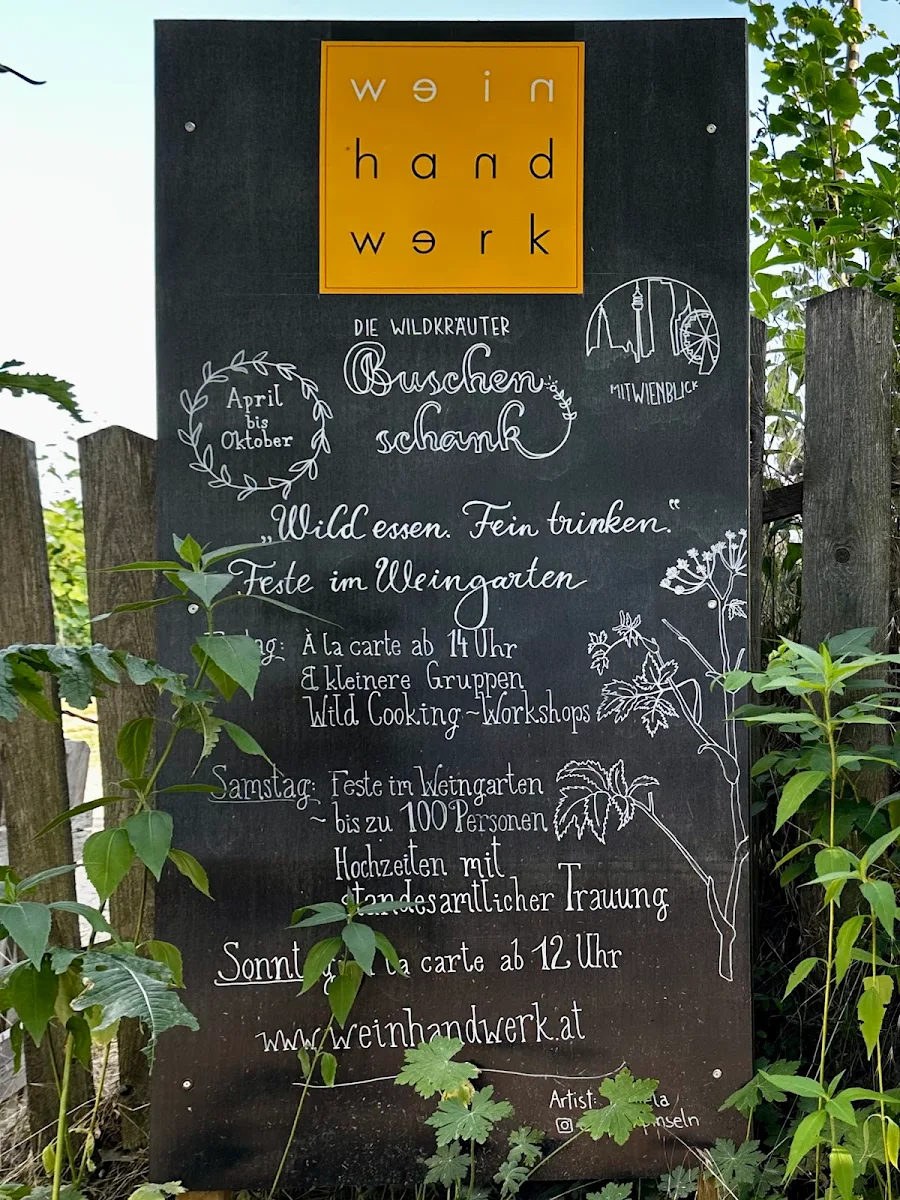 wein
hand
werk
DIE WILDKRÄUTER
Buschen
schank
April
bis
Oktober
MIT WIENBLICK
„Wild essen. Fein trinken."
Feste im Weingarten
À la carte ab 14 Uhr
& kleinere Gruppen
Wild Cooking~Workshops
Samstag: Feste im Weingarten
~ bis zu 100 Personen
Hochzeiten mit
standesamtlicher Trauung
à la carte ab 12 Uhr
www.weinhandwerk.at
Artist: